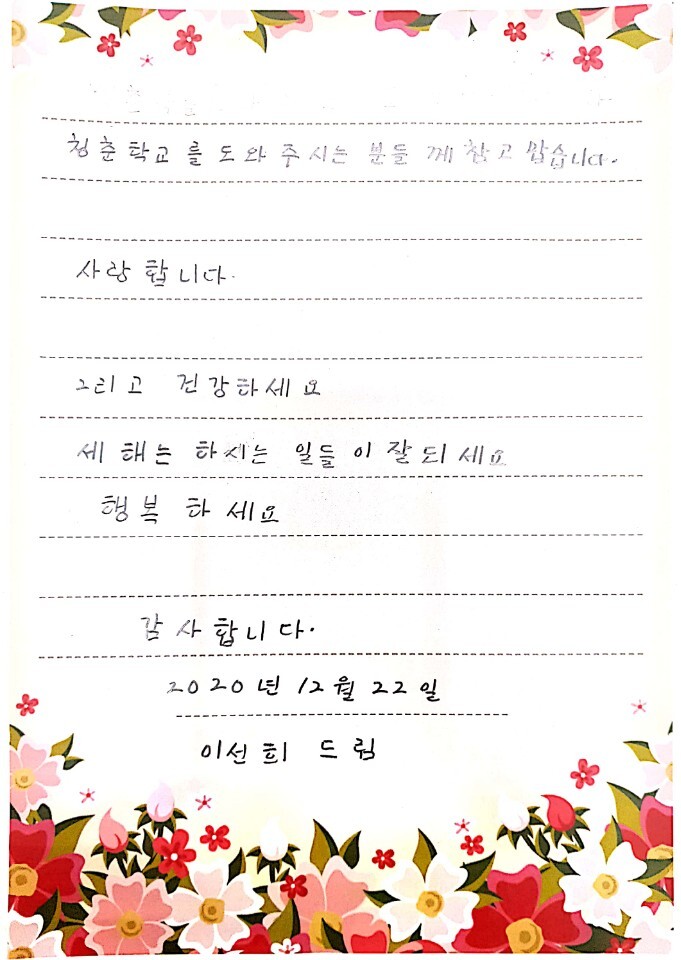 청춘학교를 도와주시는 분들께 참고맙습니다.
사랑합니다.
그리고 건강하세요
세해는 하시는 일들이 잘되세요
행복하세요
감사합니다.
2020년 12월 22일
이선희 드림